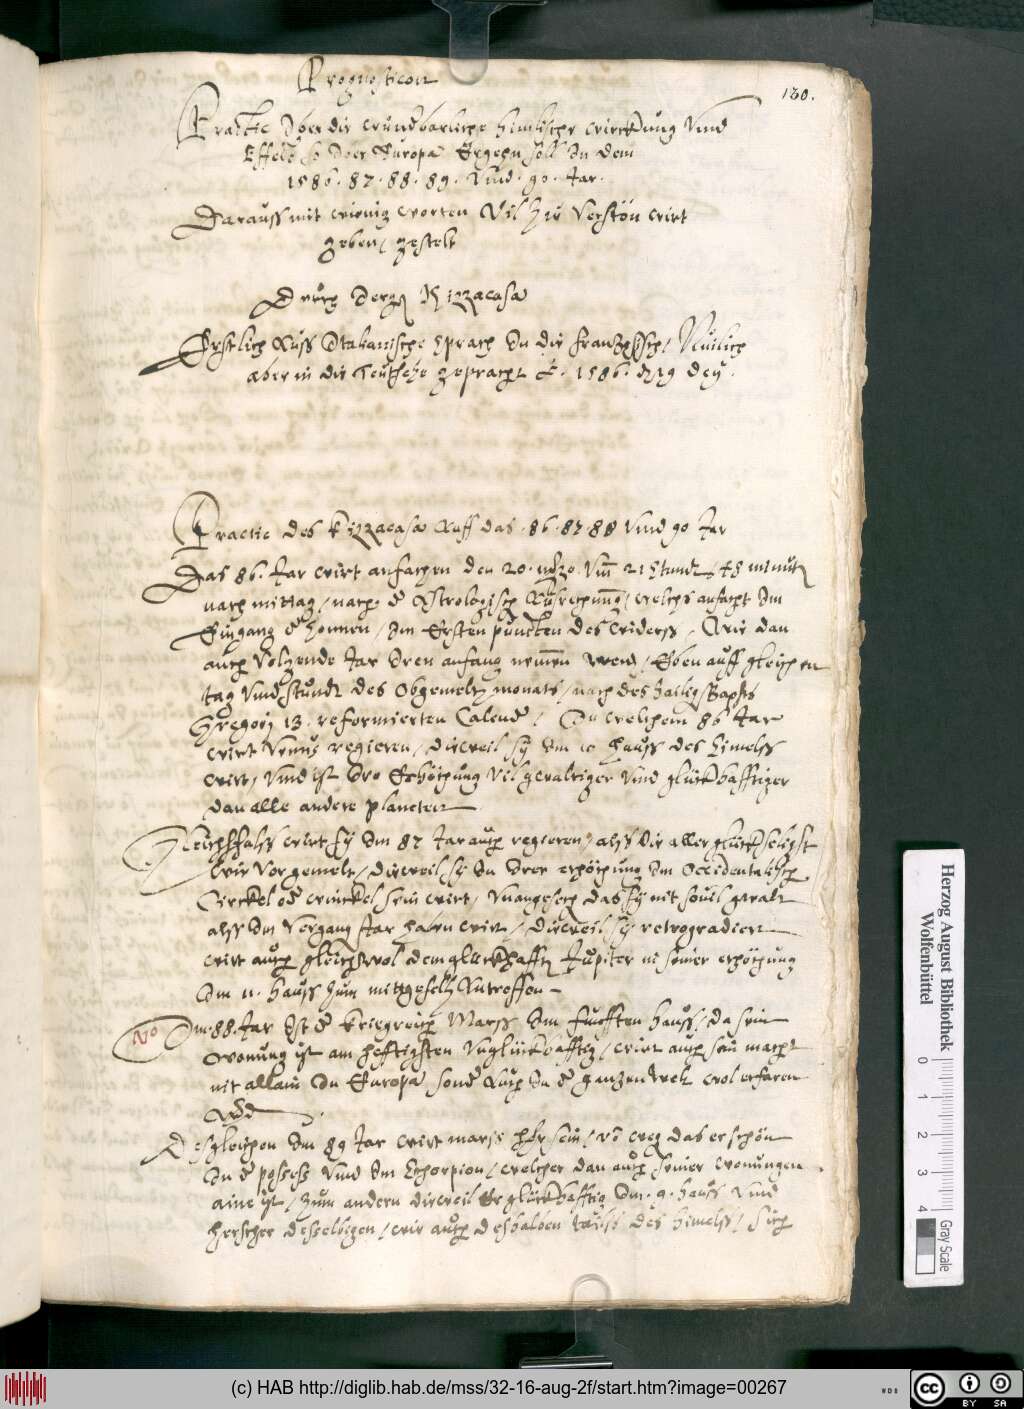 Prognosticon
130.
Practic Vber die wunderbarliche himlische wirckung Vnnd
Effect so Vber Europa Ergehn soll In dem
1586. 87. 88. 89. Vnnd. 90. Jar.
Darauss mit wienig worten Vil Zu Verston wirt
geben / gestelt
Durch Rizzacasa
Erstlich Auss Italianischer sprach In die frantzösisch / Neulich
aber in die Teutsche gepracht 1586. 19
Practic des Rizzacasa Auff das. 86. 87. 88 Vnnd 90 Jar
Das 86. Jar wirt anfachen den 20. Vm 21 Stund 48 minut
nach mittag / nach der Astrologisch Ausrechnung / welchs anfacht Im
Eingang der Sonnen / Im Ersten puncten des widerss / Wie dan
auch Volgende Jar Iren anfang nemen werd / Eben auff gleichen
tag Vnnd stundt des Obgemelt monats / nach des heilig Bapsts
Gregorij 13. reformierten Calender / In welchem 86 Jar
wirt Venus regieren / dieweil sy Im 10 hauss des himelss
wirt / Vnnd ist Ire Erhöchung Vil gewaltiger Vnnd glückhafftiger
dan alle andere planeten
Gleichsfalss wirt sy Im 87 Jar auch regieren / alss die aller glückseligst
wie Vorgemelt / dieweil sy In Irer erhöchung Im Occidentalisch
Circkel oder winckel sein wirt / Vnangesech das sy nit souil gewalt
alss Im Vergangen Jar haben wirt / dieweil sy retrogradiert
wirt auch gleichwol dem glückhafft Jupiter in seiner erhöchung
Im 11. hauss Zum mittgeselln Antreffen
No
Im. 88. Jar Ist der kriegreich Marss Im fünfften hauss / da sein
wonung ist am hefftigsten Vnglückhafftig / wirt auch sein macht
nit allain In Europa sonder Auch In der gantzen welt wol erfaren
werden
Desgleichen Im 89 Jar wirt marss herr sein / von weg das er schön
In der possess Vnnd Im Schorpion / welcher dan auch seiner wonungen
aine ist / Zum andern dieweil Er glückhafftig Im. 9. hauss Vnnd
herscher desselbigen / wie auch deshalben des himelss / sich
Herzog August Bibliothek
Wolfenbüttel
0 1 2 3 4
Gray Scale
(c) HAB http://diglib.hab.de/mss/32-16-aug-2f/start.htm?image=00267
WDB
cc BY SA